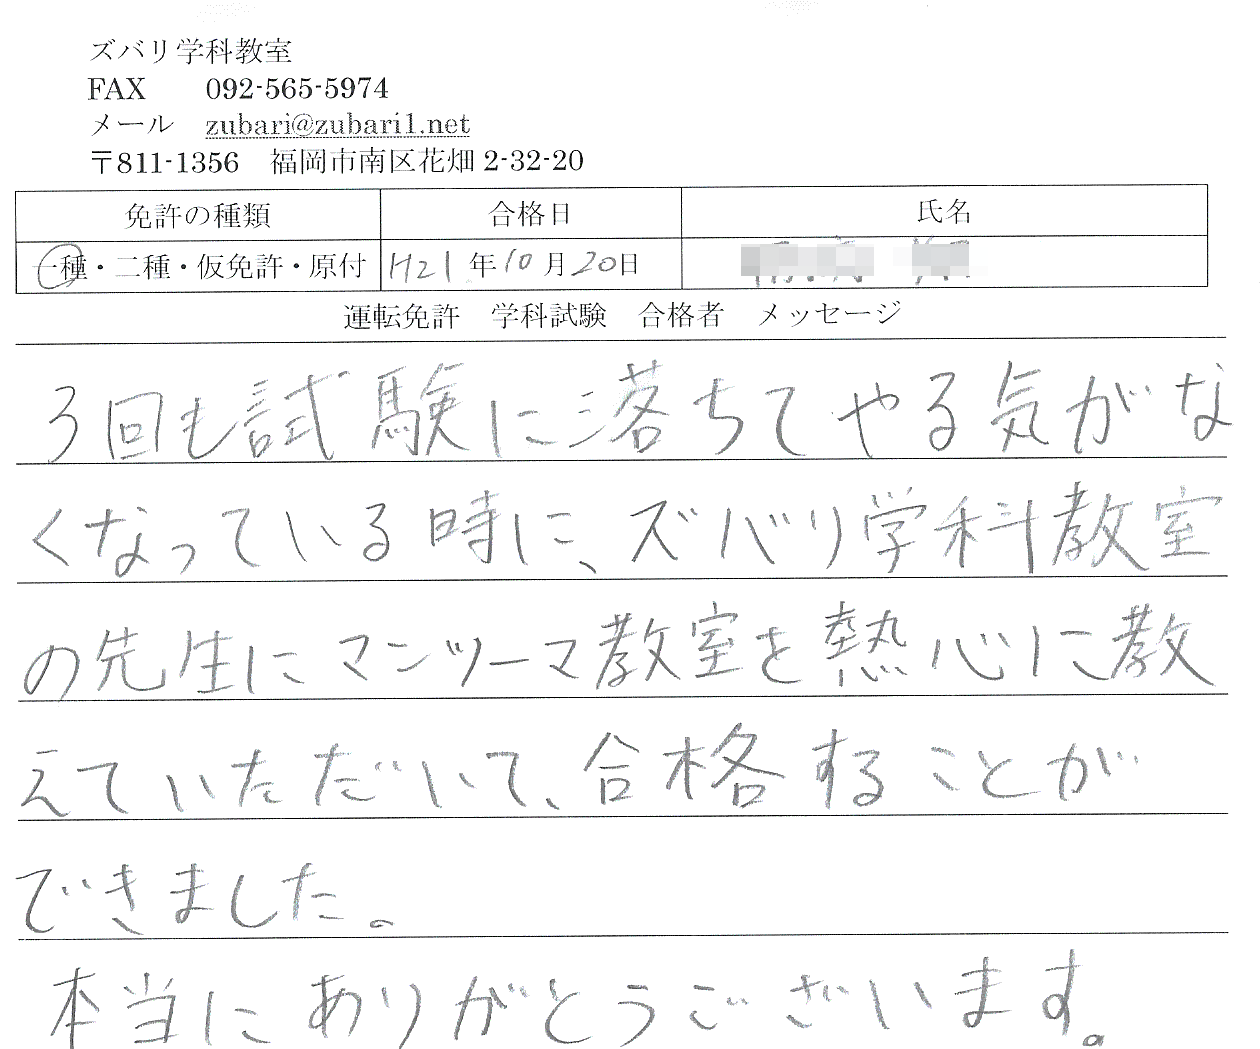 ズバリ学科教室
FAX 092-565-5974
メール zubari@zubari1.net
〒811-1356 福岡市南区花畑 2-32-20
免許の種類 合格日 氏名
一種・二種・仮免許・原付 H21年10月20日
運転免許 学科試験 合格者 メッセージ
3回も試験に落ちてやる気がな
くなっている時に、ズバリ学科教室
の先生にマンツーマ教室を熱心に教
えていただいて、合格することが
できました。
本当にありがとうございます。